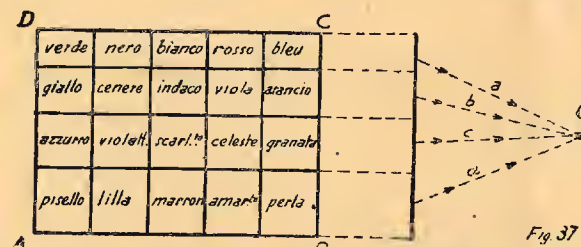 D C
verde nero bianco rosso bleu
giallo cenere indaco viola arancio
azzurro violatt. scarl.to celeste granata
pisello lilla marron amar.to perla
a
b
c
d
Fig. 37